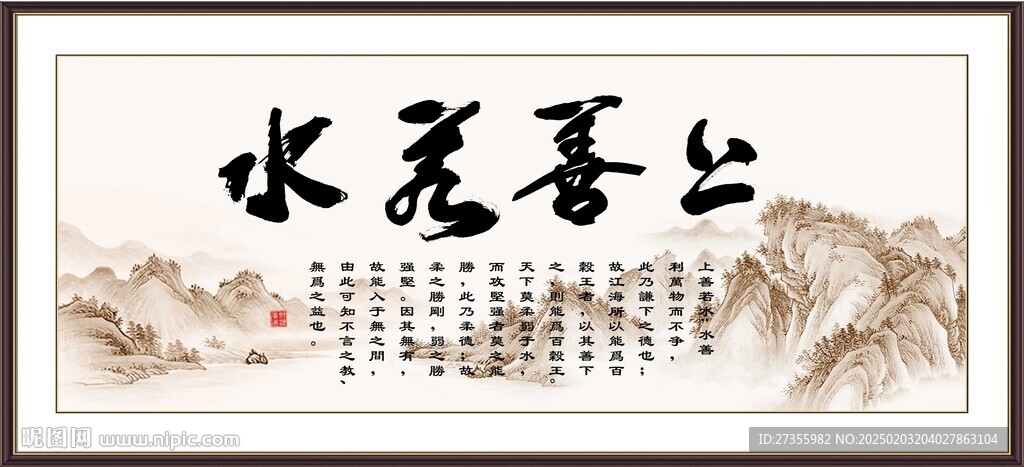 上善若水
上善若水，水善
利萬物而不爭，
此乃謙下之德也；
故江海所以能爲百
穀王者，以其善下
之，則能爲百穀王。
天下莫柔弱于水，
而攻堅强者莫之能
勝，此乃柔德；故
柔之勝剛，弱之勝
强堅。因其無有，
故能入于無之間，
由此可知不言之教、
無爲之益也。
昵图网 www.nipic.com
ID:27355982 NO:20250203204027863104